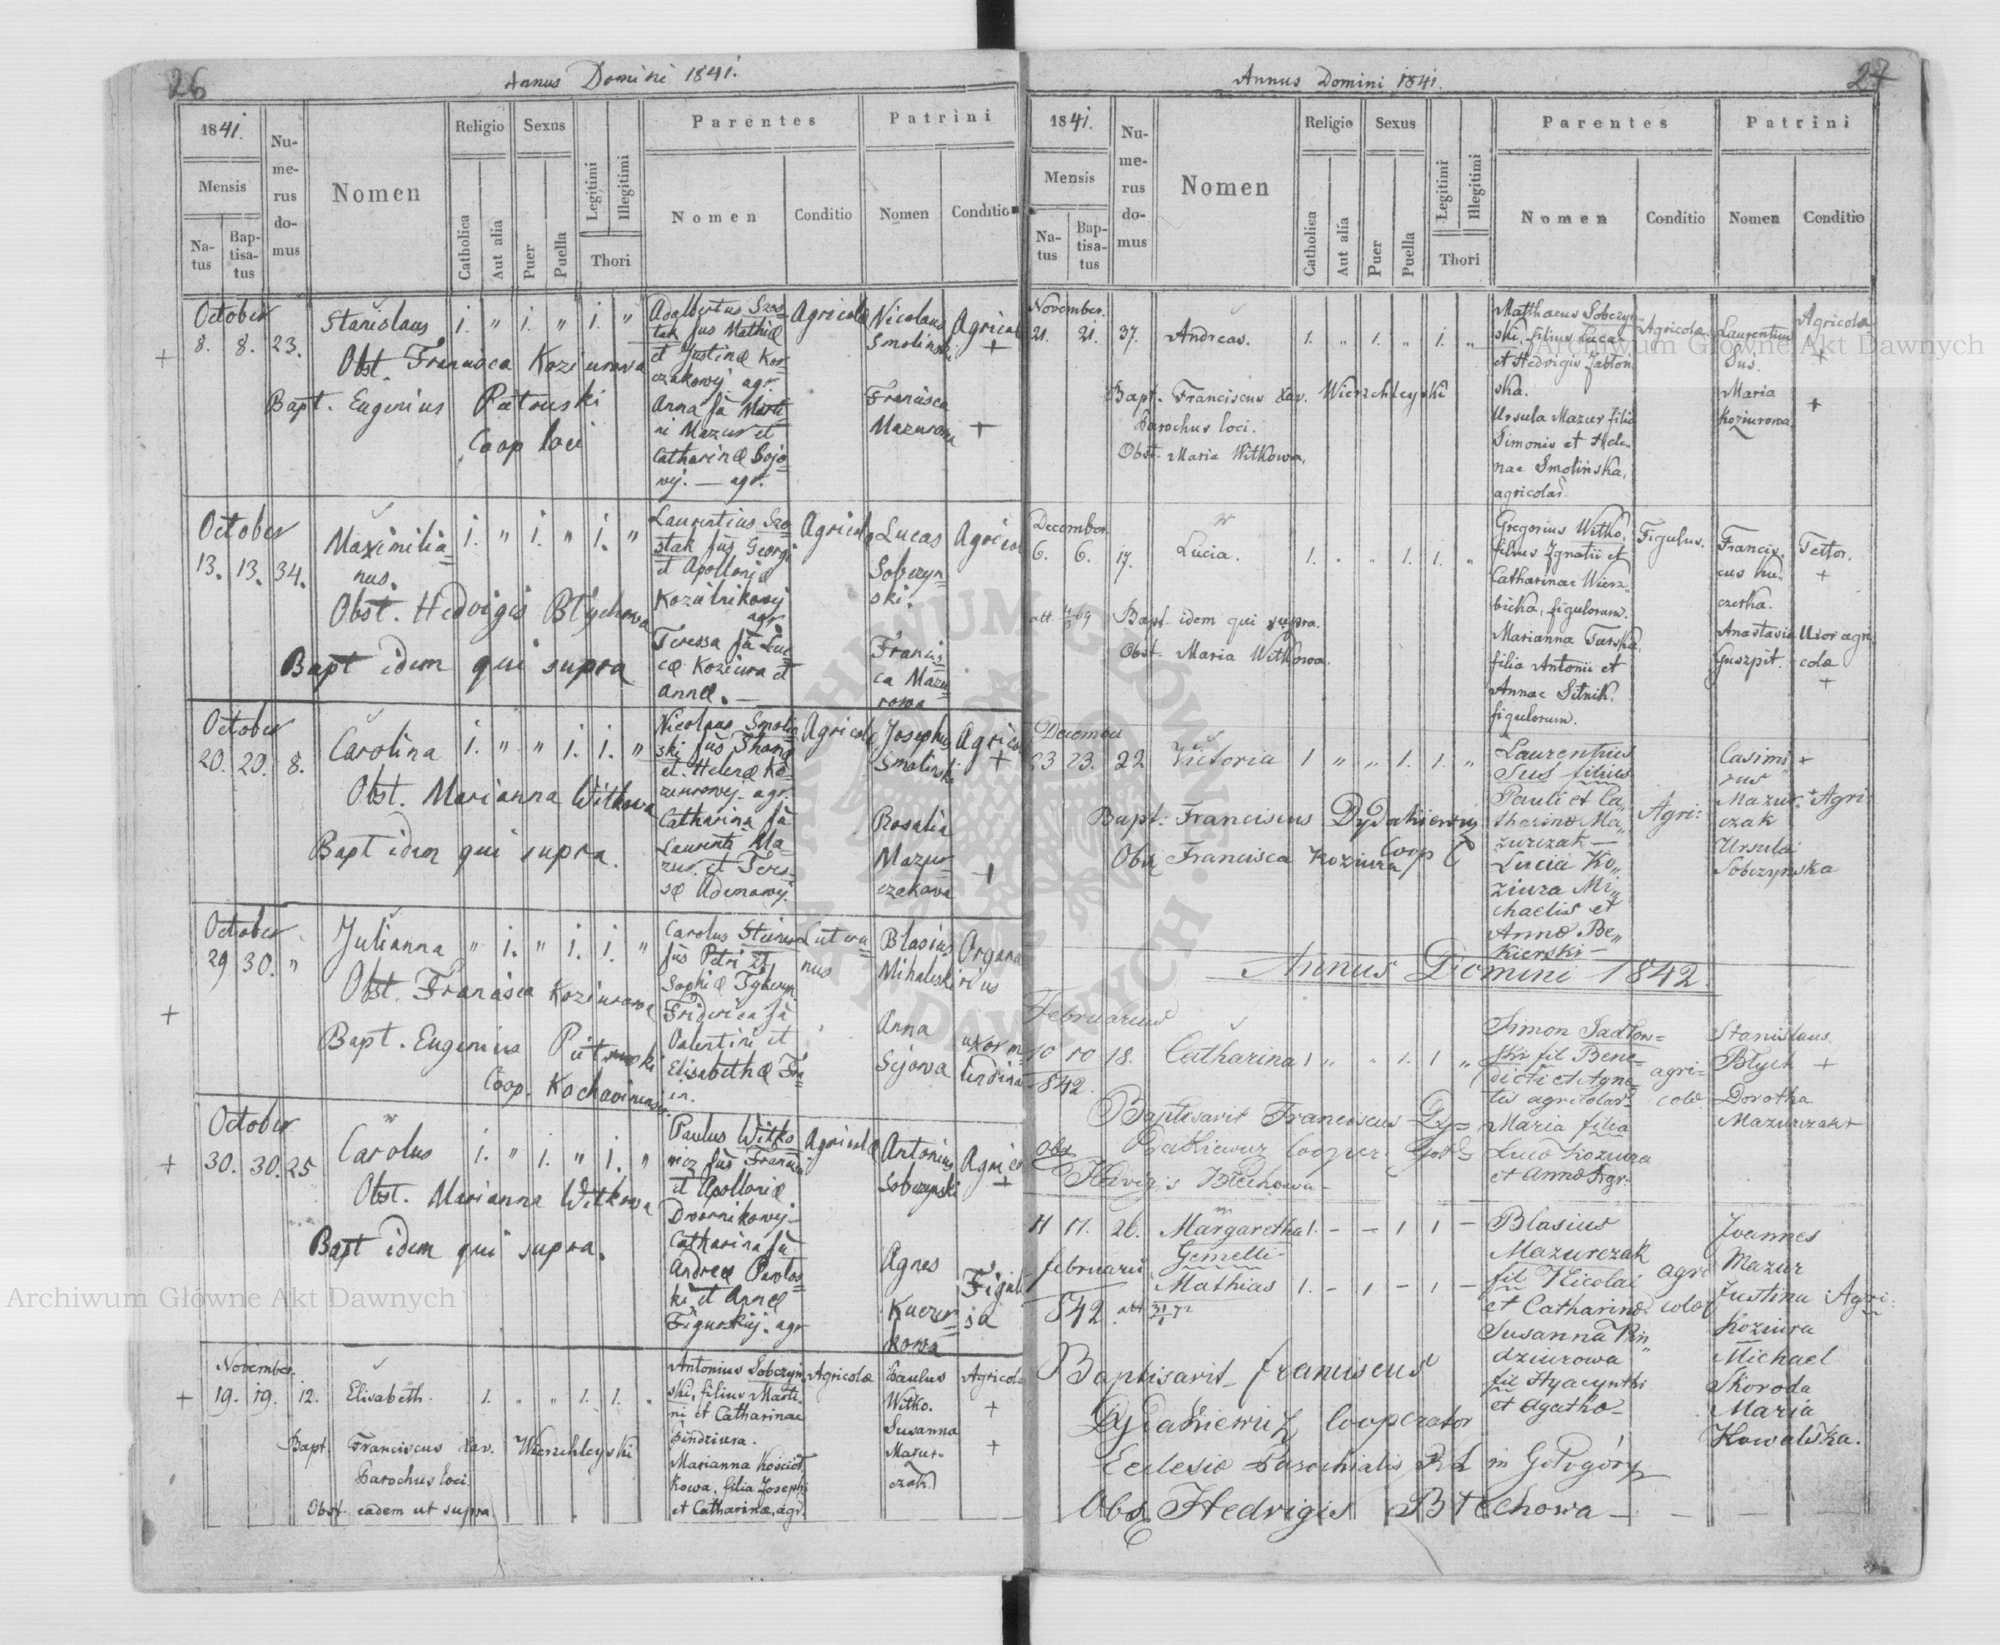 26
Annus Domini 1841.
1841.
Mensis
Na-
tus
Bap-
tisa-
tus
Nu-
me-
rus
do-
mus
Nomen
Religio
Catholica
Aut alia
Sexus
Puer
Puella
Legitimi
Illegitimi
Thori
Parentes
Nomen
Conditio
Patrini
Nomen
Conditio
October
8. 8. 23.
Stanislaus
1. " 1. " 1. "
Obst. Francisca Koziurowa
Bapt. Eugenius Pietruski
Coop loci
Adalbertus Szos-
tak fus Mathiæ
et Justinæ Kor-
czakowij agr.
Anna fa Marti-
ni Mazur et
Catharinæ Sojo-
wij. — agr.
Agricolæ
Nicolaus
Smolinski
Francisca
Mazurowa
Agricol
+
+
October
13. 13. 34.
Maximilia=
nus.
1. " 1. " 1. "
Obst. Hedvigis Blychowa
Bapt idem qui supra
Laurentius Szo-
stak fus Georgi
et Apolloniæ
Kozielnikowij
agr.
Teressa fa Lu-
cæ Koziura et
Annæ.
Agricolæ
Lucas
Sobczyn=
ski.
Francis=
ca Mazu=
rowa
October
20. 20. 8.
Carolina
1. " " 1. 1. "
Obst. Marianna Witkowa
Bapt idem qui supra.
Nicolaus Smolin-
ski fus Thomæ
et Helenæ Ko-
ziurowij agr.
Catharina fa
Laurenti Ma-
zur et Teres-
sæ Adamowij.
Agricolæ
Josephus
Smolinski
Rosalia
Mazur=
czakowa
+
+
October
29 30. "
Julianna
" 1. " 1. 1. "
Obst. Francisca Koziurowa
Bapt. Eugenius Pietruski
Coop. Kochavinensis
fus Petri et
Friderica fa
Valentini et
Elisabethæ
Lutera=
nus
Blasius
Mihaleski
Anna
Sojowa
Organa
rius
uxor
October
30. 30. 25
Carolus
1. " 1. " 1. "
Obst. Marianna Witkowa
Bapt idem qui supra.
Paulus Witko
et Apolloniæ
Dwornikowij
Catharina fa
Andreæ Pawlos-
ki et Annæ
Figurskiej. agr
Agricolæ
Antonius
Sobczynski
Agnes
Kuczer=
kowa
Agrico
+
Figul
November.
19. 19. 12.
Elisabeth.
1. " " 1. 1. "
Bapt. Franciscus Xav. Wierzchleyski
Parochus loci.
Obst. eadem ut supra.
Antonius Sobczyń-
ski, filius Marti-
ni et Catharinae
Pindziura.
Marianna Kościoł-
kowa, filia Josephi
et Catharinæ, agr.
Agricolæ
Paulus
Witko.
Susanna
Mazur-
czak
Agricolæ
+
+
27
Annus Domini 1841.
1841.
Mensis
Na-
tus
Bap-
tisa-
tus
Nu-
me-
rus
do-
mus
Nomen
Religio
Catholica
Aut alia
Sexus
Puer
Puella
Legitimi
Illegitimi
Thori
Parentes
Nomen
Conditio
Patrini
Nomen
Conditio
November.
21. 21. 37.
Andreas.
1. " 1. " 1. "
Bapt. Franciscus Xav. Wierzchleyski
Parochus loci.
Obst. Maria Witkowa.
Matthaeus Sobczyn-
ski, filius Lucae
et Hedvigis Jabłoń-
ska.
Ursula Mazur filia
Simonis et Hele-
nae Smolińska,
agricolar.
Agricolæ
Laurentius
Sus.
Maria
Koziurowa
Agricolæ
+
+
December.
6. 6. 17.
Lucia.
1. " " 1. 1. "
Bapt. idem qui supra.
Obst. Maria Witkowa.
Gregorius Witko,
filius Ignatii et
Catharinae Wierz-
bicka, figulorum.
Marianna Turska,
filia Antonii et
Annae Sitnik,
figulorum.
Figulus.
Francis-
cus Ku-
czerka.
Anastasia
Guszpit.
Textor.
+
Uxor agri-
colæ
+
23 23. 22
Victoria
1 " " 1. 1. "
Bapt. Franciscus Dydakiewicz
Coop
Francisca Koziura
Laurentius
Sus filius
Pauli et Ca"
tharinæ Ma"
zurczak —
Lucia Ko"
ziura Mi"
chaelis et
Annæ Be"
kierski —
Agri:
Casimi
rus
Mazur"
czak
Ursula
Sobczynska
+
Agri:
Annus Domini 1842.
Februarius
10 10 18.
842.
Catharina
1 " " 1. 1 "
Baptisavit Franciscus Dy=
dakiewicz Cooper:
Obs
Hedvigis Btechowa
Simon Sadłow=
ski fil Bene=
dicti et Agne=
tis agricolar-
Maria filia
Lucæ Koziura
et Annæ Agr:
agri=
colæ
Stanislaus
Błych +
Dorotha
Mazurczak
11 11. 26.
februarii
842
Margaretha
1. - - 1 1 -
Gemelli
Mathias
1. - 1 - 1 -
Baptisavit franciscus
Dydakiewicz Cooperator
Eclesiæ Parochialis R L in Gołogóry
Obs. Hedvigis Btechowa —
Blasius
Mazurczak
fil Nicolai
et Catharinæ
Susanna Pin"
dziurowa
fil Hyacynthi
et Agathæ —
agri
colæ
Joannes
Mazur
Justina
Koziura
Michael
Skoroda
Maria
Kowalska.
Agri:
Archiwum Główne Akt Dawnych
Archiwum Główne Akt Dawnych
ARCHIWUM GŁÓWNE AKT DAWNYCH